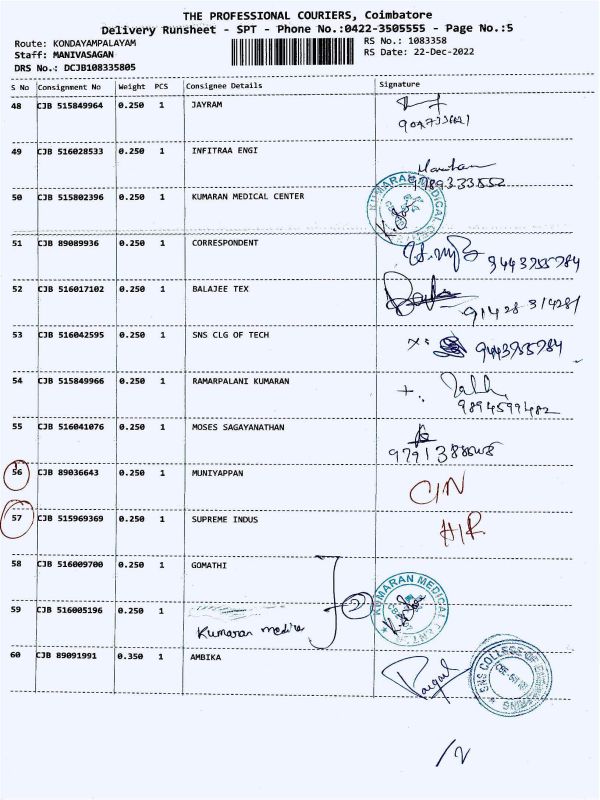 THE PROFESSIONAL COURIERS, Coimbatore
Delivery Runsheet - SPT - Phone No.:0422-3505555 - Page No.:5
Route: KONDAYAMPALAYAM
Staff: MANIVASAGAN
DRS No.: DCJB108335805
RS No.: 1083358
RS Date: 22-Dec-2022
S No Consignment No Weight PCS Consignee Details Signature
48 CJB 515849964 0.250 1 JAYRAM
49 CJB 516028533 0.250 1 INFITRAA ENGI
50 CJB 515802396 0.250 1 KUMARAN MEDICAL CENTER
KUMARAN MEDICAL
51 CJB 89089936 0.250 1 CORRESPONDENT
52 CJB 516017102 0.250 1 BALAJEE TEX
53 CJB 516042595 0.250 1 SNS CLG OF TECH
54 CJB 515849966 0.250 1 RAMARPALANI KUMARAN
55 CJB 516041076 0.250 1 MOSES SAGAYANATHAN
56 CJB 89036643 0.250 1 MUNIYAPPAN C/N
57 CJB 515969369 0.250 1 SUPREME INDUS H/R
58 CJB 516009700 0.250 1 GOMATHI
59 CJB 516005196 0.250 1
Kumaran medica
2
KUMARAN MEDICAL
60 CJB 89091991 0.350 1 AMBIKA
SNS COLLEGE OF